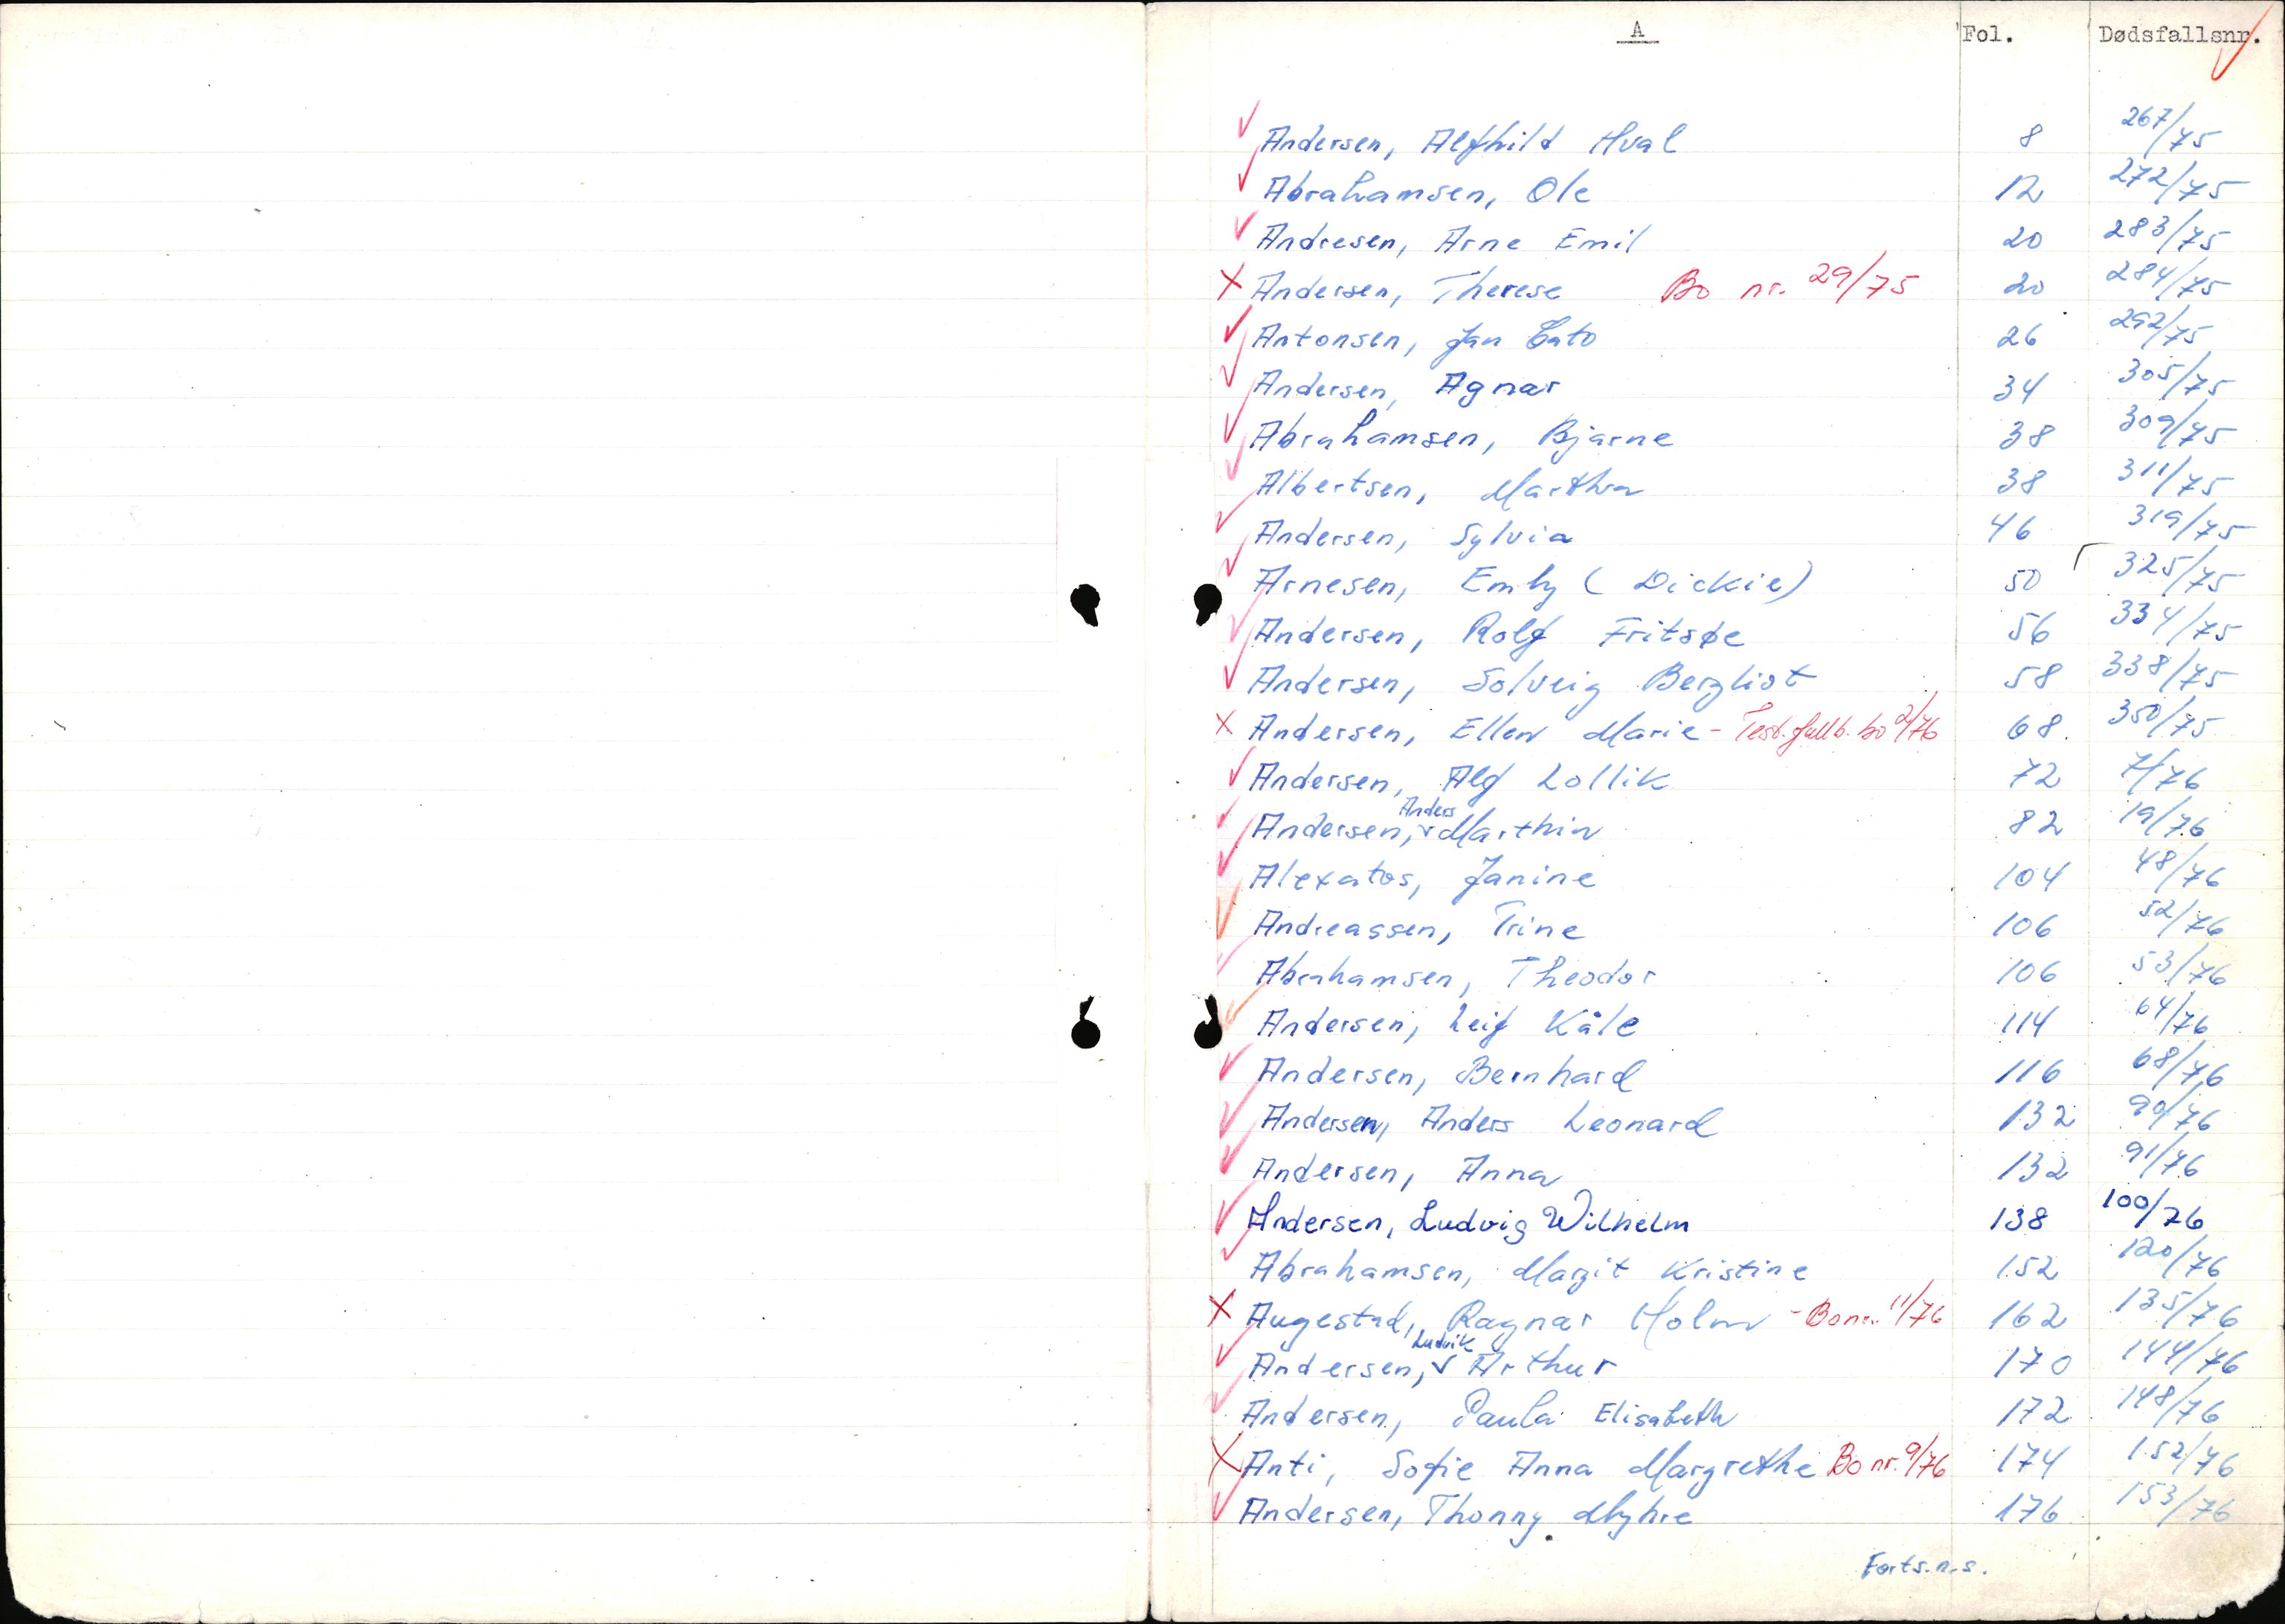 A Fol. Dødsfallsnr.
✓ Andersen, Alfhild Hval 8 267/75
✓ Abrahamsen, Ole 12 272/75
✓ Andresen, Arne Emil 20 283/75
X Andersen, Therese Bo nr. 29/75 20 284/75
✓ Antonsen, Jan Cato 26 292/75
✓ Andersen, Agnar 34 305/75
✓ Abrahamsen, Bjarne 38 309/75
✓ Albertsen, Martha 38 311/75
✓ Andersen, Sylvia 46 319/75
✓ Arnesen, Emly (Dickie) 50 325/75
✓ Andersen, Rolf Fritsøe 56 334/75
✓ Andersen, Solveig Bergliot 58 338/75
X Andersen, Ellen Marie - Test. fullb. bo 2/76 68 350/75
✓ Andersen, Alf Lollik 72 7/76
✓ Andersen, Anders Marthin 82 19/76
✓ Alexatos, Janine 104 48/76
✓ Andreassen, Trine 106 52/76
✓ Abrahamsen, Theodor 106 53/76
✓ Andersen, Leif Kåle 114 64/76
✓ Andersen, Bernhard 116 68/76
✓ Andersen, Anders Leonard 132 90/76
✓ Andersen, Anna 132 91/76
✓ Andersen, Ludvig Wilhelm 138 100/76
✓ Abrahamsen, Margit Kristine 152 120/76
X Augestad, Ragnar Holm - Bo nr. 11/76 162 135/76
✓ Andersen, Ludvik Arthur 170 144/76
✓ Andersen, Paula Elisabeth 172 148/76
X Anti, Sofie Anna Margrethe Bo nr. 9/76 174 152/76
✓ Andersen, Thonny Myhre 176 153/76
Forts. n.s.